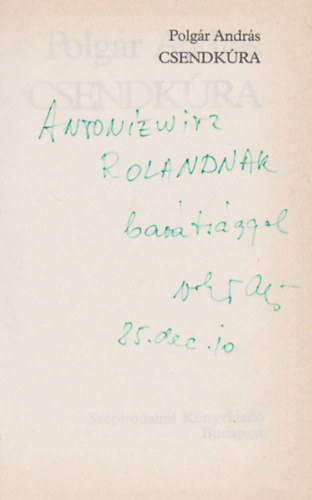 Polgár András
CSENDKÚRA
ANTONIEWITZ
ROLANDNAK
barátsággal
85. dec. 10
Szépirodalmi Könyvkiadó
Budapest